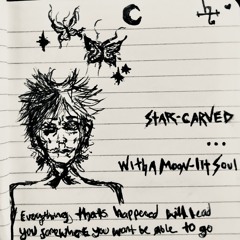 STAR-CARVED
...
With A Moon-lit Soul
Everything thats happened will lead
you somewhere you wont be able to go